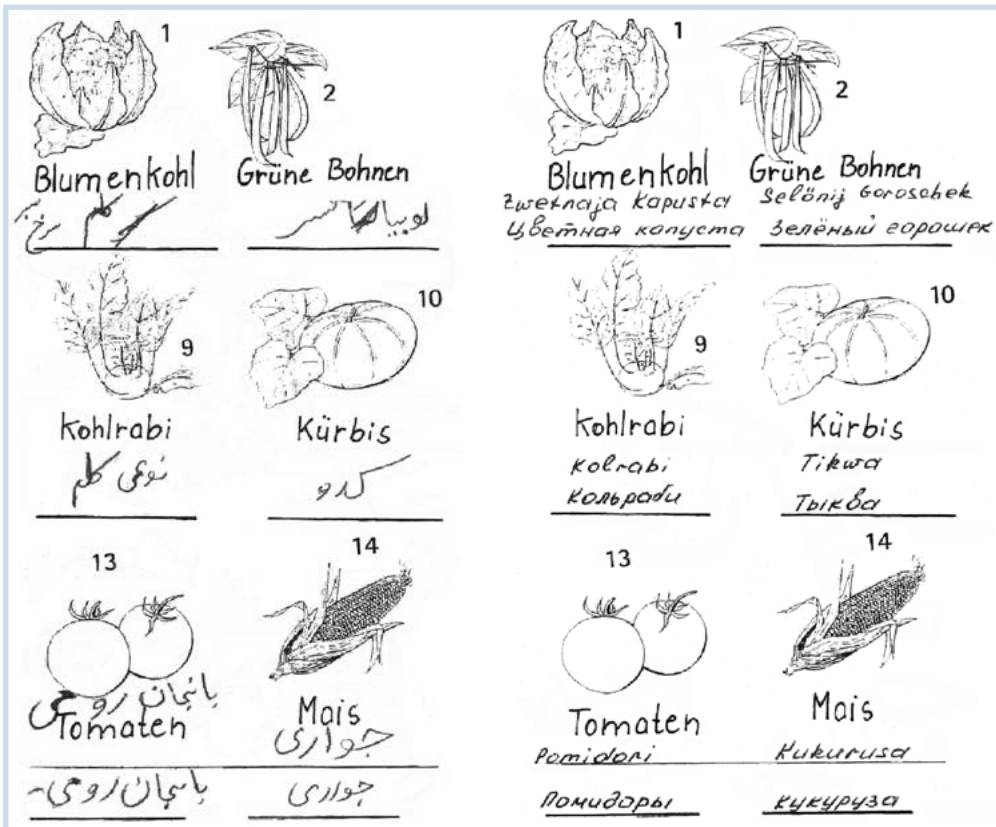 1
2
Blumenkohl
Grüne Bohnen
لوبیا
9
10
Kohlrabi
Kürbis
نوعی کلم
کدو
13
14
بانجان رومی
Tomaten
Mais
جواری
بانجان رومی
جواری
1
2
Blumenkohl
Grüne Bohnen
Zwetnaja Kapusta
Selönij Goroschek
Цветная капуста
Зелёный горошек
9
10
Kohlrabi
Kürbis
Kolrabi
Tikwa
Кольраби
Тыква
13
14
Tomaten
Mais
Pomidori
Kukurusa
Помидоры
Кукуруза